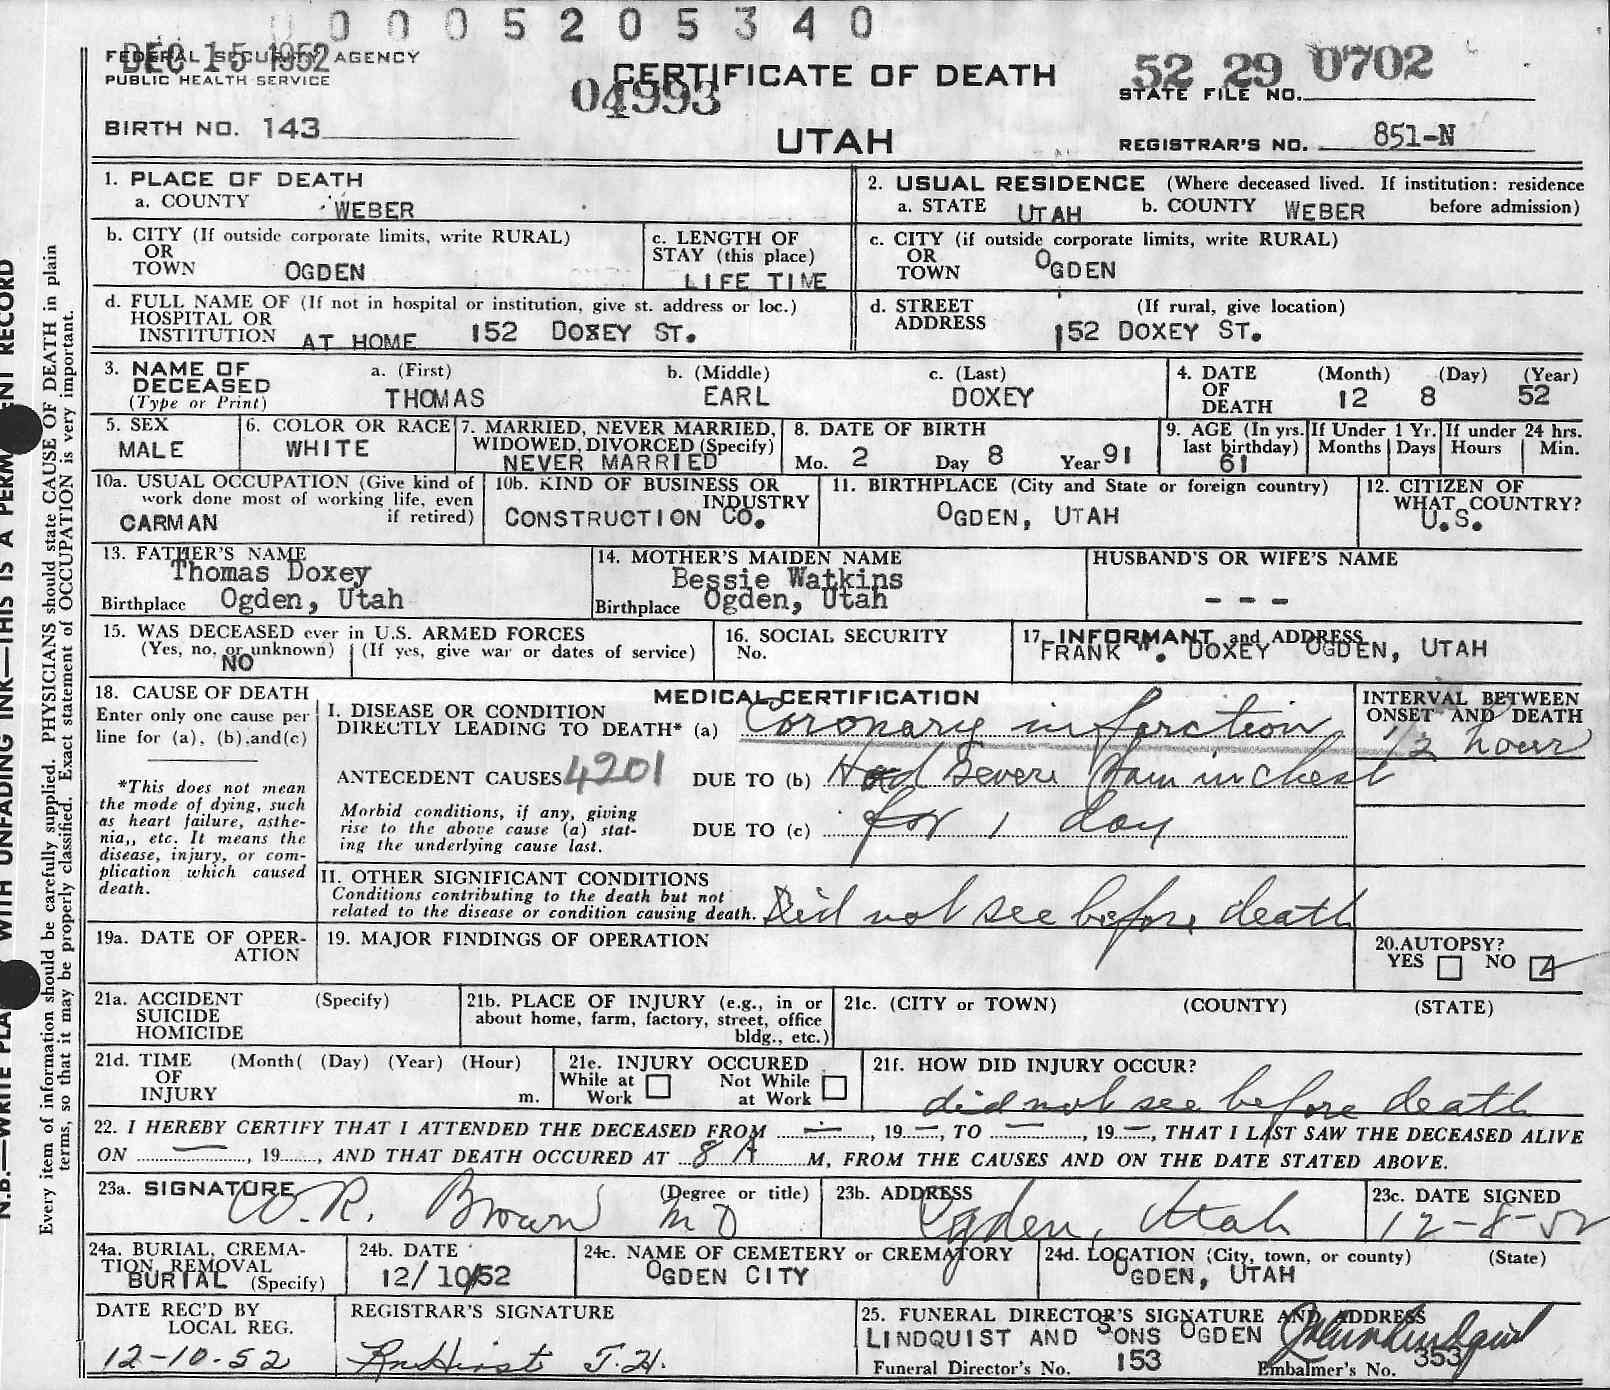 0 0 0 0 5 2 0 5 3 4 0
DEC 15 1952
FEDERAL SECURITY AGENCY
PUBLIC HEALTH SERVICE
BIRTH NO. 143
CERTIFICATE OF DEATH
04993
UTAH
52 29 0702
STATE FILE NO.
REGISTRAR'S NO. 851-N
N.B.—WRITE PLA WITH UNFADING INK—THIS IS A PERM ENT RECORD
Every item of information should be carefully supplied. PHYSICIANS should state CAUSE OF DEATH in plain
terms, so that it may be properly classified. Exact statement of OCCUPATION is very important.
1. PLACE OF DEATH
a. COUNTY WEBER
2. USUAL RESIDENCE (Where deceased lived. If institution: residence
a. STATE UTAH b. COUNTY WEBER before admission)
b. CITY (If outside corporate limits, write RURAL)
OR
TOWN OGDEN
c. LENGTH OF
STAY (this place)
LIFE TIME
c. CITY (if outside corporate limits, write RURAL)
OR
TOWN OGDEN
d. FULL NAME OF (If not in hospital or institution, give st. address or loc.)
HOSPITAL OR
INSTITUTION AT HOME 152 DOXEY ST.
d. STREET (If rural, give location)
ADDRESS 152 DOXEY ST.
3. NAME OF DECEASED (Type or Print)
a. (First) b. (Middle) c. (Last)
THOMAS EARL DOXEY
4. DATE OF DEATH (Month) (Day) (Year)
12 8 52
5. SEX
MALE
6. COLOR OR RACE
WHITE
7. MARRIED, NEVER MARRIED,
WIDOWED, DIVORCED (Specify)
NEVER MARRIED
8. DATE OF BIRTH
Mo. 2 Day 8 Year 91
9. AGE (In yrs.
last birthday)
61
If Under 1 Yr.
Months Days
If under 24 hrs.
Hours Min.
10a. USUAL OCCUPATION (Give kind of
work done most of working life, even
if retired)
CARMAN
10b. KIND OF BUSINESS OR
INDUSTRY
CONSTRUCTION CO.
11. BIRTHPLACE (City and State or foreign country)
OGDEN, UTAH
12. CITIZEN OF
WHAT COUNTRY?
U.S.
13. FATHER'S NAME
Thomas Doxey
Birthplace Ogden, Utah
14. MOTHER'S MAIDEN NAME
Bessie Watkins
Birthplace Ogden, Utah
HUSBAND'S OR WIFE'S NAME
- - -
15. WAS DECEASED ever in U.S. ARMED FORCES
(Yes, no, or unknown) (If yes, give war or dates of service)
NO
16. SOCIAL SECURITY
No.
17. INFORMANT and ADDRESS
FRANK W. DOXEY OGDEN, UTAH
18. CAUSE OF DEATH
Enter only one cause per
line for (a), (b), and (c)
*This does not mean
the mode of dying, such
as heart failure, asthe-
nia,, etc. It means the
disease, injury, or com-
plication which caused
death.
MEDICAL CERTIFICATION
I. DISEASE OR CONDITION
DIRECTLY LEADING TO DEATH* (a) Coronary infarction
INTERVAL BETWEEN
ONSET AND DEATH
1/2 hour
ANTECEDENT CAUSES 4201 DUE TO (b) Had Severe Pain in chest
Morbid conditions, if any, giving
rise to the above cause (a) stat-
ing the underlying cause last.
DUE TO (c) for 1 day
II. OTHER SIGNIFICANT CONDITIONS
Conditions contributing to the death but not
related to the disease or condition causing death. Did not see before death
19a. DATE OF OPER-
ATION
19. MAJOR FINDINGS OF OPERATION
20. AUTOPSY?
YES NO
21a. ACCIDENT (Specify)
SUICIDE
HOMICIDE
21b. PLACE OF INJURY (e.g., in or
about home, farm, factory, street, office
bldg., etc.)
21c. (CITY or TOWN) (COUNTY) (STATE)
21d. TIME (Month( (Day) (Year) (Hour)
OF
INJURY m.
21e. INJURY OCCURED
While at Work Not While at Work
21f. HOW DID INJURY OCCUR?
did not see before death
22. I HEREBY CERTIFY THAT I ATTENDED THE DECEASED FROM — , 19 —, TO — , 19 —, THAT I LAST SAW THE DECEASED ALIVE
ON — , 19......, AND THAT DEATH OCCURED AT 8 A M, FROM THE CAUSES AND ON THE DATE STATED ABOVE.
23a. SIGNATURE (Degree or title)
W. R. Brown MD
23b. ADDRESS
Ogden, Utah
23c. DATE SIGNED
12-8-52
24a. BURIAL, CREMA-
TION, REMOVAL
BURIAL (Specify)
24b. DATE
12/10/52
24c. NAME OF CEMETERY or CREMATORY
OGDEN CITY
24d. LOCATION (City, town, or county) (State)
OGDEN, UTAH
DATE REC'D BY
LOCAL REG.
12-10-52
REGISTRAR'S SIGNATURE
25. FUNERAL DIRECTOR'S SIGNATURE AND ADDRESS
LINDQUIST AND SONS OGDEN
Funeral Director's No. 153 Embalmer's No. 353